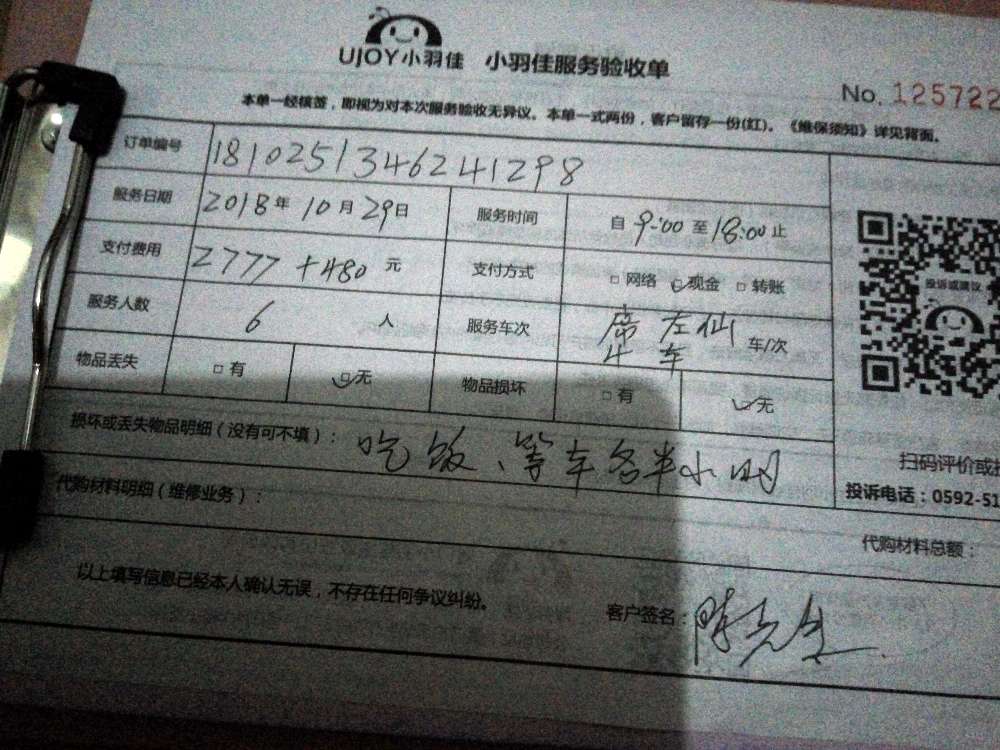 UJOY小羽佳 小羽佳服务验收单
No. 125722
本单一经核签，即视为对本次服务验收无异议。本单一式两份，客户留存一份(红)。《维保须知》详见背面。
订单编号 1810251346241298
服务日期 2018年10月29日 服务时间 自9:00至18:00止
支付费用 2777+480元 支付方式 □网络 □现金 □转账
服务人数 6人 服务车次 席左仙 4车 车/次
物品丢失 □有 □无 物品损坏 □有 □无
投诉或建议
损坏或丢失物品明细（没有可不填）： 吃饭、等车各半小时
扫码评价或
投诉电话：0592-51
代购材料明细（维修业务）：
代购材料总额：
以上填写信息已经本人确认无误，不存在任何争议纠纷。
客户签名：陈先生